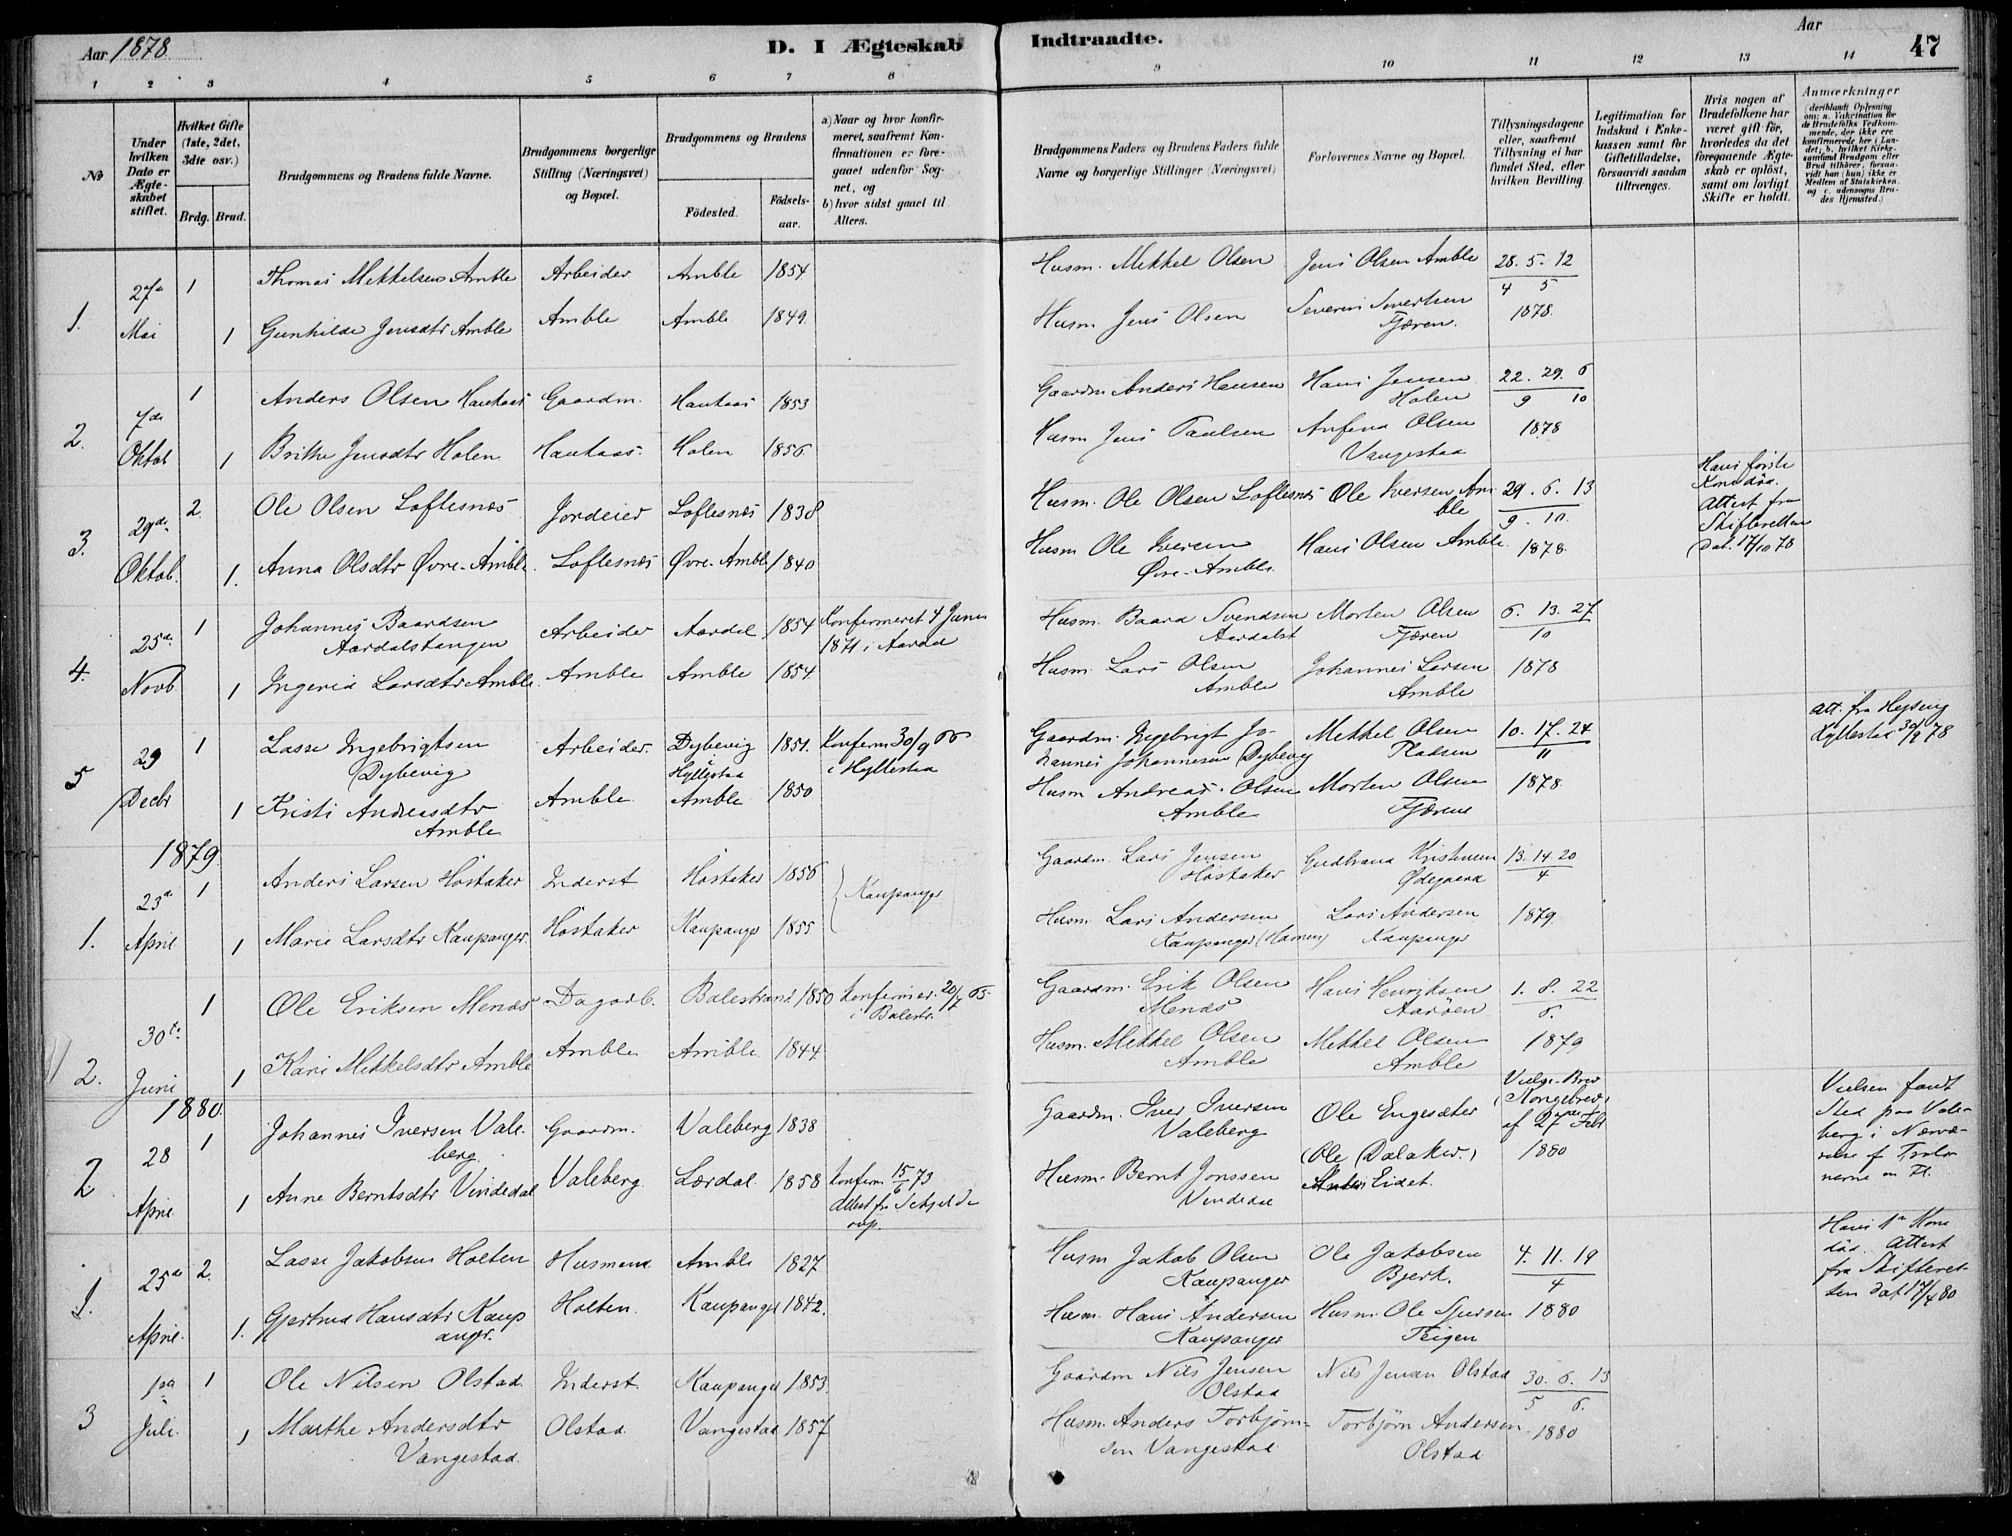 Aar 1878.
D. I Ægteskab Indtraadte.
Aar
47
1 2 3 4 5 6 7 8 9 10 11 12 13 14
No
Under hvilken Dato er Ægteskabet stiftet.
Hvilket Gifte (1ste, 2det, 3die osv.)
Brdg. Brud.
Brudgommens og Brudens fulde Navne.
Brudgommens borgerlige Stilling (Næringsvei) og Bopæl.
Brudgommens og Brudens
Fødested. Fødselsaar.
a) Naar og hvor konfirmeret, saafremt Konfirmationen er foregaaet udenfor Sognet, og
b) hvor sidst gaaet til Alters.
Brudgommens Faders og Brudens Faders fulde Navne og borgerlige Stillinger (Næringsvei)
Forlovernes Navne og Bopæl.
Tillysningsdagene eller, saafremt Tillysning ei har fundet Sted, efter hvilken Bevilling.
Legitimation for Indskud i Enkekassen samt for Giftetilladelse, forsaavidt saadan tiltrænges.
Hvis nogen af Brudefolkene har været gift før, hvorledes da det foregaaende Ægteskab er opløst, samt om lovligt Skifte er holdt.
Anmærkninger (deriblandt Oplysning om: a. Vakcination for de Brudefolks Vedkommende, der ikke ere konfirmerede her i Landet; b. hvilket Kirkesamfund Brudgom eller Brud tilhører, forsaavidt han (hun) ikke er Medlem af Statskirken, og c. udensogns Brudes Hjemsted.)
1. 27de Mai 1 Thomas Mekkelsen Amble Arbeider Amble 1854 Husm. Mekkel Olsen Jens Olsen Amble 28. 5. 12
4 5
1 Gunhilde Jensdtr Amble Amble Amble 1849. Husm. Jens Olsen Severin Sivertsen Fjæren. 1878.
2. 7de Oktob 1 Anders Olsen Haukaas Gaardm. Haukaas 1853 Gaardm. Anders Hansen Hans Jensen Holen 22. 29. 6
9 10
1 Brithe Jensdtr Holen Haukaas. Holen 1856 Husm Jens Paulsen Anfind Olsen Vangestad 1878
3. 29de Oktob. 2. Ole Olsen Loftesnæs Jordeier Loftesnæs 1838 Husm. Ole Olsen Loftesnæs Ole Iversen Amble 29. 6. 13
9. 10.
Hans første Kone død. Attest fra Skifteretten Dat. 17/10 78
1. Anna Olsdtr Øvre-Amble. Loftesnæs Øvre-Amble 1840 Husm Ole Iversen Øvre-Amble. Hans Olsen Amble. 1878.
4. 25de Novb 1 Johannes Baardsen Aardalstangen Arbeider Aardal 1854 Konfirmeret 4 Juni 1871 i Aardal Husm. Baard Svendsen Aardalst Morten Olsen Fjæren 6. 13. 27
10
1 Ingerid Larsdtr Amble. Amble Amble 1854. Husm. Lars Olsen Amble Johannes Larsen Amble 1878
5 29 Decbr 1 Lasse Ingebrigtsen Dybevig Arbeider. Dybevig Hyllestad 1851. Konfirm 30/9 66 i Hyllestad Gaardm. Ingebrigt Johannes Johannesen Dybevig Mekkel Olsen Pladsen 10. 17. 24
11
Att. fra Hyllestad 78
1 Kristi Andreasdtr Amble Amble Amble 1850 Husm Andreas Olsen Amble Morten Olsen Fjærene 1878.
1879.
1. 23de April 1 Anders Larsen Høstaker Inderst Høstaker 1856 Kaupanger Gaardm. Lars Jensen Høstaker Gudbrand Kristensen Ødegaard 13. 14. 20
4
1 Marie Larsdtr Kaupanger. Høstaker Kaupanger 1855 Husm. Lars Andersen Kaupanger (Hamnen) Lars Andersen Kaupanger 1879
2. 30te Juni 1 Ole Eriksen Menæs Dagarb. Balestrand 1850 Konfirmer. 20/7 65. i Balestr. Gaardm. Erik Olsen Menæs Hans Henriksen Aarøen 1. 8. 22
6.
1 Kari Mekkelsdtr Amble Amble. Amble. 1844 Husm. Mekkel Olsen Amble Mekkel Olsen Amble 1879
1880.
2 28 April 1 Johannes Iversen Valeberg. Gaardm. Valeberg 1838 Gaardm. Iver Iversen Valeberg Ole Engesæter Vielse-Brev (Kongebrev) af 27 Febr 1880 Vielsen fandt Sted paa Valeberg i Nærværelse af Forloverne
1 Anne Berntsdtr Vindedal Valeberg. Lærdal. 1858 Konfirm. 15/6 73 Attest fr. Schjelderup. Husm. Bernt Jonssen Vindedal (Ole Dalaker.) Eidet.
1. 25de April. 2. Lasse Jakobsen Holten Husmand Amble 1827 Husm Jakob Olsen Kaupanger Ole Jakobsen Bjerk. 4. 11. 19
4
Hans 1ste Kone død. Attest fra Skifteretten dat 17/4 80
1. Gjertrud Hansdtr Kaupanger. Holten. Kaupanger 1842. Husm. Hans Andersen Kaupanger Husm. Ole Sjursen Teigen 1880
3 1ste Juli. 1 Ole Nilsen Olstad. Inderst. Kaupanger 1853. Gaardm Nils Jensen Olstad Nils Jensen Olstad 30. 6. 13
5 6.
1 Marthe Andersdtr Vangestad. Olstad Vangestad 1857 Husm. Anders Torbjørnsen Vangestad Torbjørn Andersen Olstad 1880